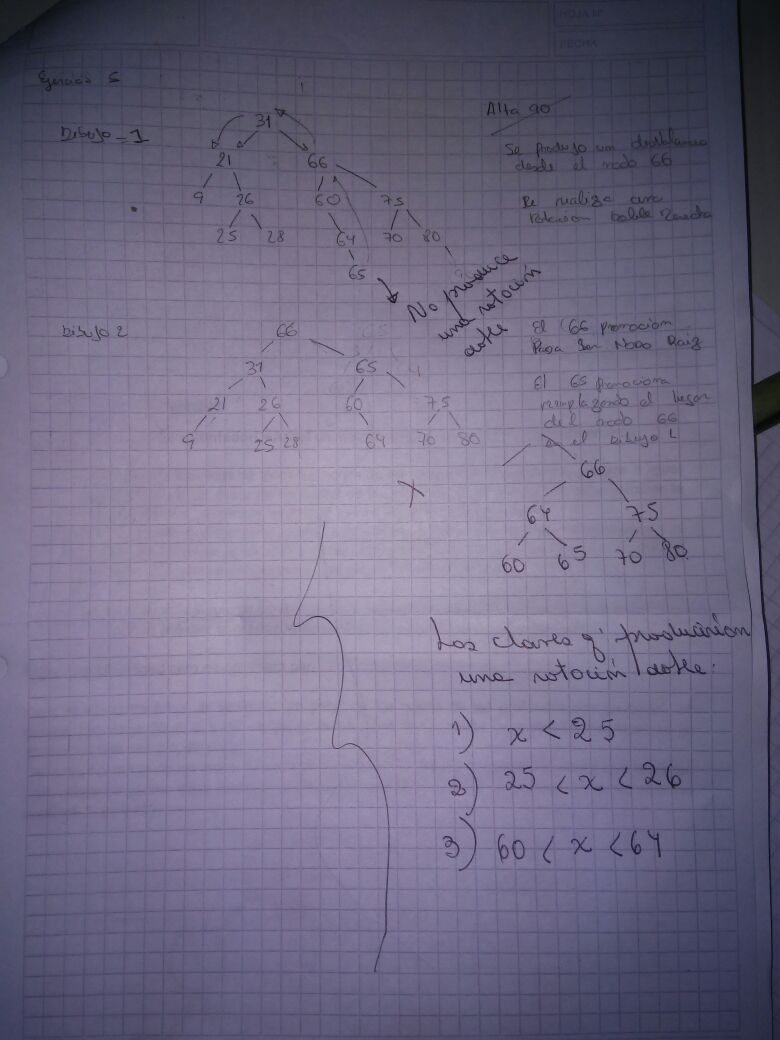 HOJA Nº
FECHA
Ejercicio 5
Dibujo - 1
Alta 90
31
21 66
9 26 60 75
25 28 64 70 80
65
Se produjo un desbalanceo
desde el nodo 66
Se realiza una
rotacion doble
No produce
una rotación
doble
Dibujo 2
66
31 65
21 26 60 75
9 25 28 64 70 80
El 66 promocion
Para Ser Nodo Raiz
El 65 promociona
remplazando el lugar
del nodo 66
el Dibujo 1
66
64 75
60 65 70 80
Las claves q' producirían
una rotación doble:
1) x < 25
2) 25 < x < 26
3) 60 < x < 64